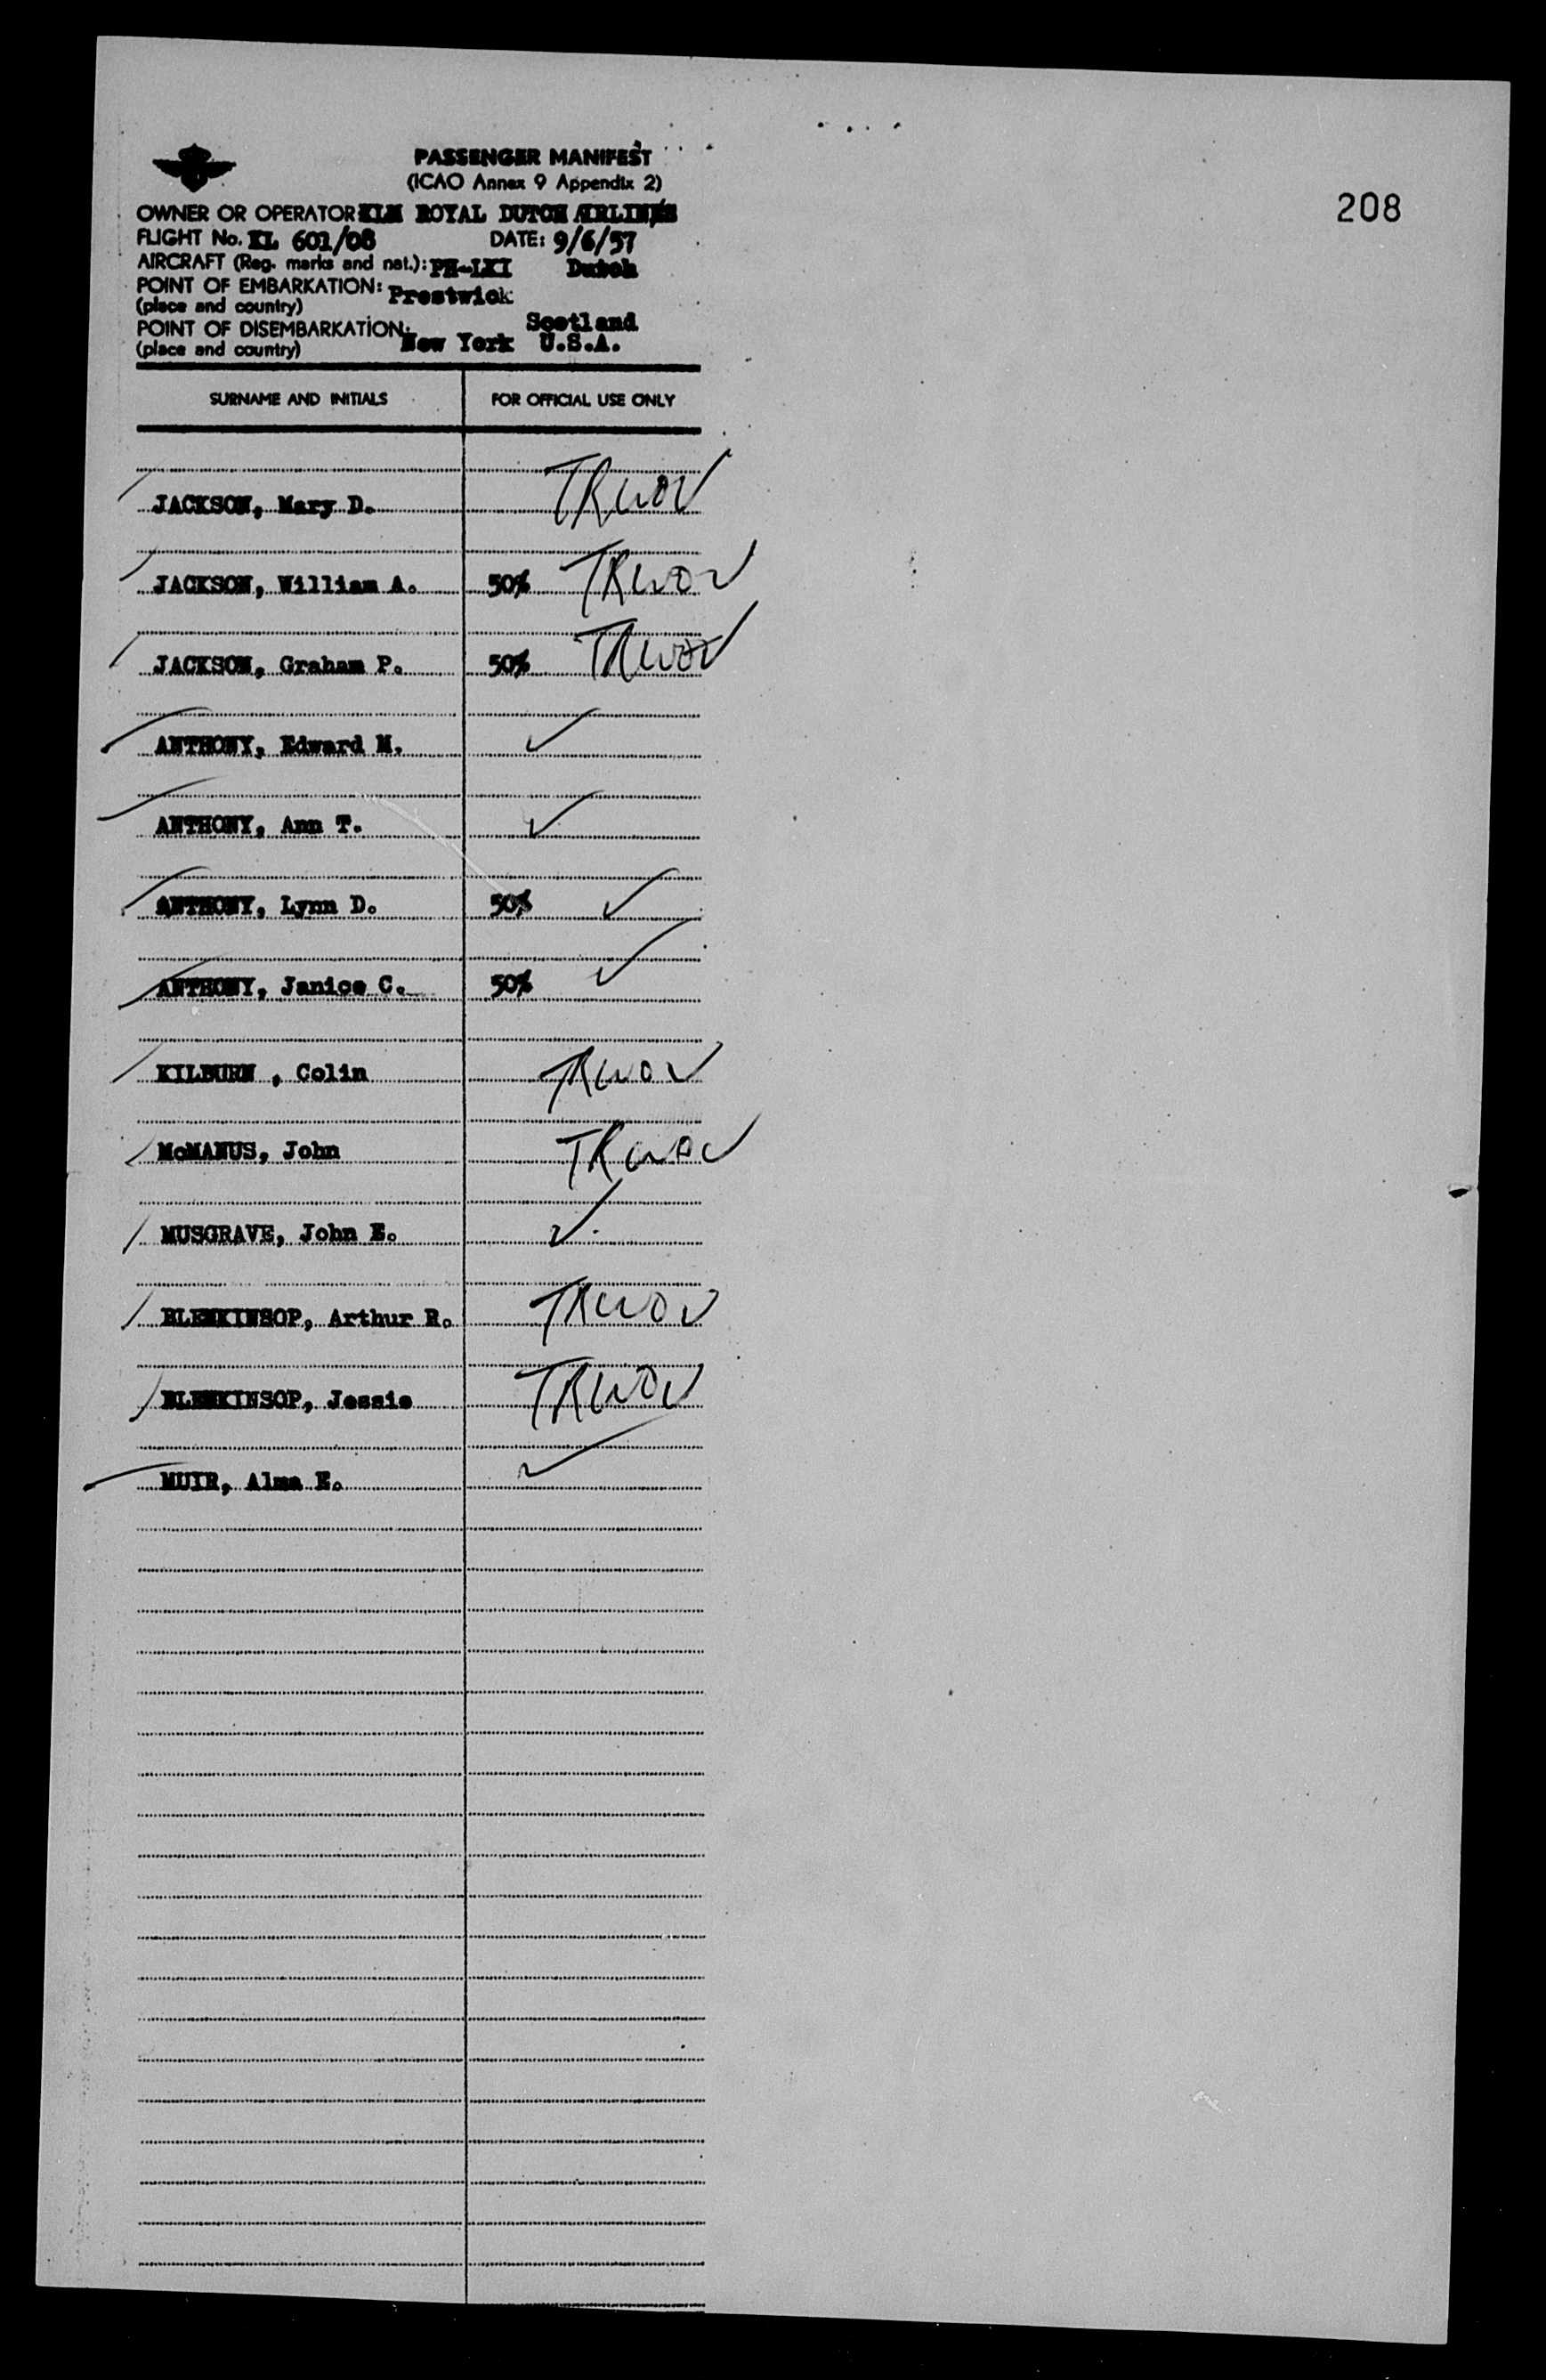 208
PASSENGER MANIFEST
(ICAO Annex 9 Appendix 2)
OWNER OR OPERATOR KLM ROYAL DUTCH AIRLINES
FLIGHT No. KL 601/08 DATE: 9/6/57
AIRCRAFT (Reg. marks and nat.): PH-LKI Dutch
POINT OF EMBARKATION: Prestwick
(place and country) Scotland
POINT OF DISEMBARKATION: New York U.S.A.
(place and country)
SURNAME AND INITIALS FOR OFFICIAL USE ONLY
JACKSON, Mary D. TRWOV
JACKSON, William A. 50% TRWOV
JACKSON, Graham P. 50% TRWOV
ANTHONY, Edward M.
ANTHONY, Ann T.
ANTHONY, Lynn D. 50%
ANTHONY, Janice C. 50%
KILBURN , Colin TRWOV
McMANUS, John TRWOV
MUSGRAVE, John E.
BLENKINSOP, Arthur R. TRWOV
BLENKINSOP, Jessie TRWOV
MUIR, Alma E.